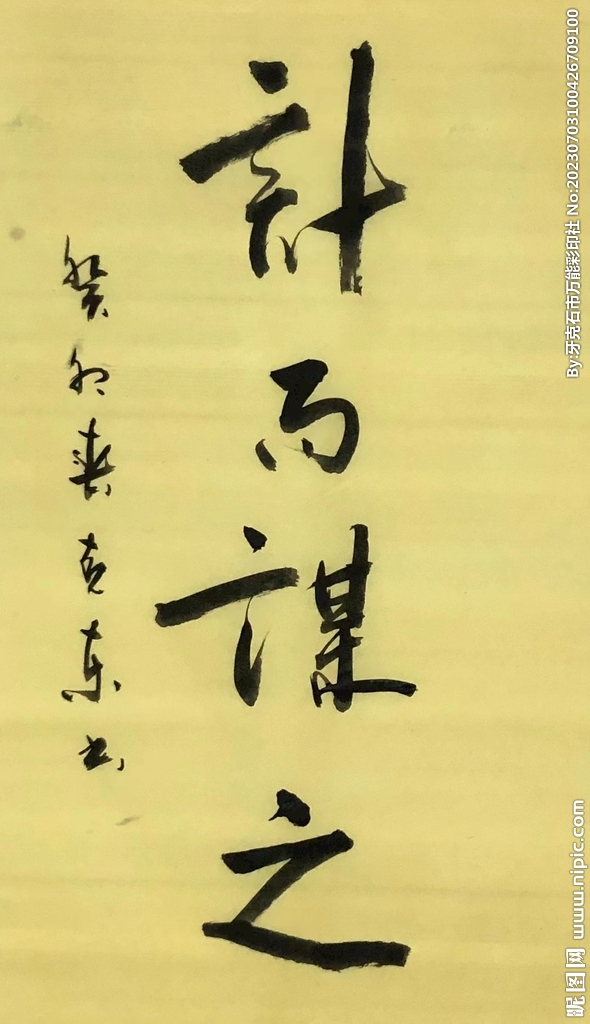 計而謀之
癸卯春克東书
By:牙克石市万能彩印社 No:20230703100426709100
昵图网 www.nipic.com